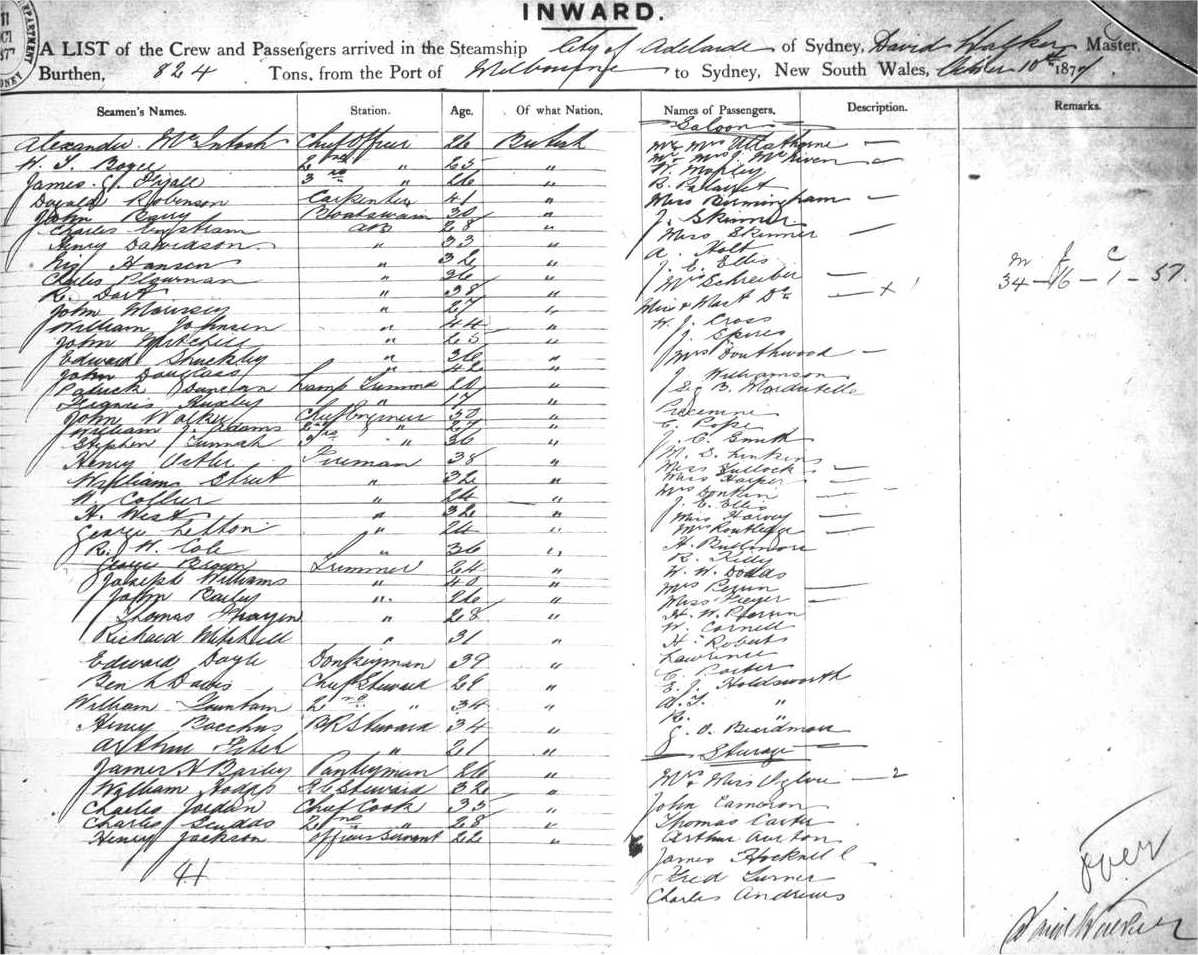 INWARD.
A LIST of the Crew and Passengers arrived in the Steamship City of Adelaide of Sydney, David Walker Master,
Burthen, 824 Tons, from the Port of Melbourne to Sydney, New South Wales, October 10th 1877
Seamen's Names. Station. Age. Of what Nation. Names of Passengers. Description. Remarks.
Saloon
Alexander McIntosh Chief Officer 26 British Mr Mrs —
W. J. Boyce 2nd " 25 " Mr Mrs J. McNiven —
James G. 3rd " 26 " W. Mopley
Donald Robinson Carpenter 41 " R.
John Barry Boatswain 30 " Miss Birmingham —
Charles AB 28 " J. Skinner
Henry Davidson " 33 " Miss Skinner —
Hansen " 32 " A. Holt
Charles Plowman " 36 " J. E. Ellis
R. Dart " 38 " Mrs Schreiber —
John Morrisey " 27 " Miss & Mast Do — x 1
William Johnson " 44 " W. J. Cross
John Mitchell " 25 " J. Spires
Edward Shuckley " 36 " Mrs Southwood —
John Douglass " 42 " J. Williamson
Patrick Duncan Lamp Trimmer 20 " B.
Francis Huxley " 17 "
John Walker Chief Engineer 30 " C. Pope
William J. Adams 2nd " 27 " J. C. Smith
Stephen Tunnah 3rd " 36 " M. D. Jenkins
Henry Fireman 38 " Miss Tullock —
Williams Strut " 32 " Miss Harper —
W. Collier " 24 " Mrs Donkin —
H. West " 32 " J. E. Ellis
George Letton " 24 " Miss Harvey —
R. W. Cole " 36 " Mrs Routledge —
George Brown Trimmer 24 " H. Buttimore
Joseph Williams " 40 " R. Kelly
John Bailey " 26 " W. W. Dodds
Thomas " 28 " Mrs Perrin —
Richard Mitchell " 31 " Miss —
Edward Doyle Donkeyman 39 " H. W. Perrin
Ben L Davis Chief Steward 29 " W. Cornell
William Fountain 2nd " 34 " H. Roberts
Henry Bacchus BR Steward 34 " Lawrence
Arthur Fitch " 21 " C. Porter
James H Bailey Pantryman 26 " E. J. Holdsworth
William Dodds RC Steward 32 " A. T. "
Charles Jordan Chief Cook 35 " R. "
Charles 2nd " 28 " G. O. Boardman
Henry Jackson Officers Servant 22 "
41
Steerage
Mrs & Miss Ogilvie — 2
John Cameron
Thomas Carter
Arthur Aurton
James Hocknell
Fred Turner
Charles Andrews
M F C
34 — 16 — 1 — 57.
over
David Walker